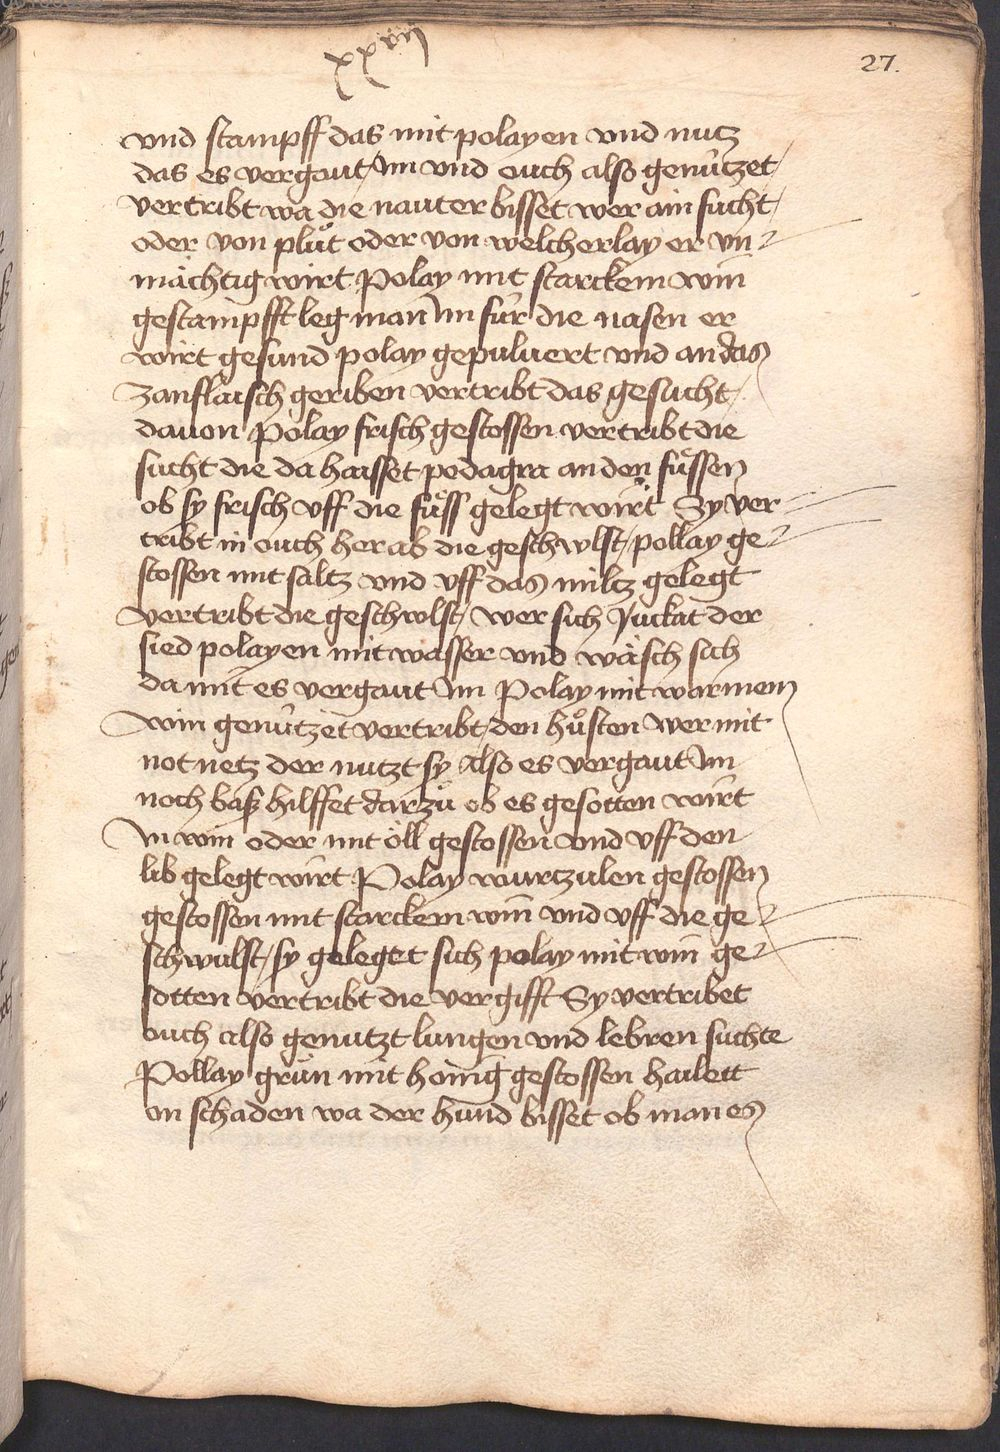 xxvij
27.
vnd stampff das mit polayen vnd nutz
das es vergaut / Im vnd ouch also genützet /
vertribt wa die nauter bisset wer ain sucht /
oder von plůt oder von welcherlay er vn⸗
mächtig wirt Polay mit starckem win
gestampfft leg man Im für die nasen er
wirt gesund polay gepuluert vnd an das
zanflaisch geriben vertribt das gesücht /
dauon Polay frisch gestossen vertribt die
sucht die da haisset pedagra an den fůssen
ob sy frisch vff die fůss gelegt wirt Sy ver⸗
tribt in ouch her ab die geschwlst / pollay ge⸗
stossen mit saltz vnd vff das miltz gelegt
vertribt die geschwlst / wer sich Juckat der
sied polayen mit wasser vnd wäsch sich
da mit es vergaut Im Polay mit warmem
win genützet vertribt / den hůsten wer mit
not netz der nutzt sy also es vergaut Im
noch bas hilffet darzů ob es gesotten wirt
In win oder mit öll gestossen vnd vff den
lib gelegt wirt Polay wurtzulen gestossen
gestossen mit starckem win vnd vff die ge⸗
schwulst / sy geleget sich polay mit win ge⸗
sotten vertribt die vergifft Sy vertribet
ouch also genutzt lungen vnd lebren süchte
Pollay grün mit honig gestossen hailett
on schaden wa der hund bisset ob man es